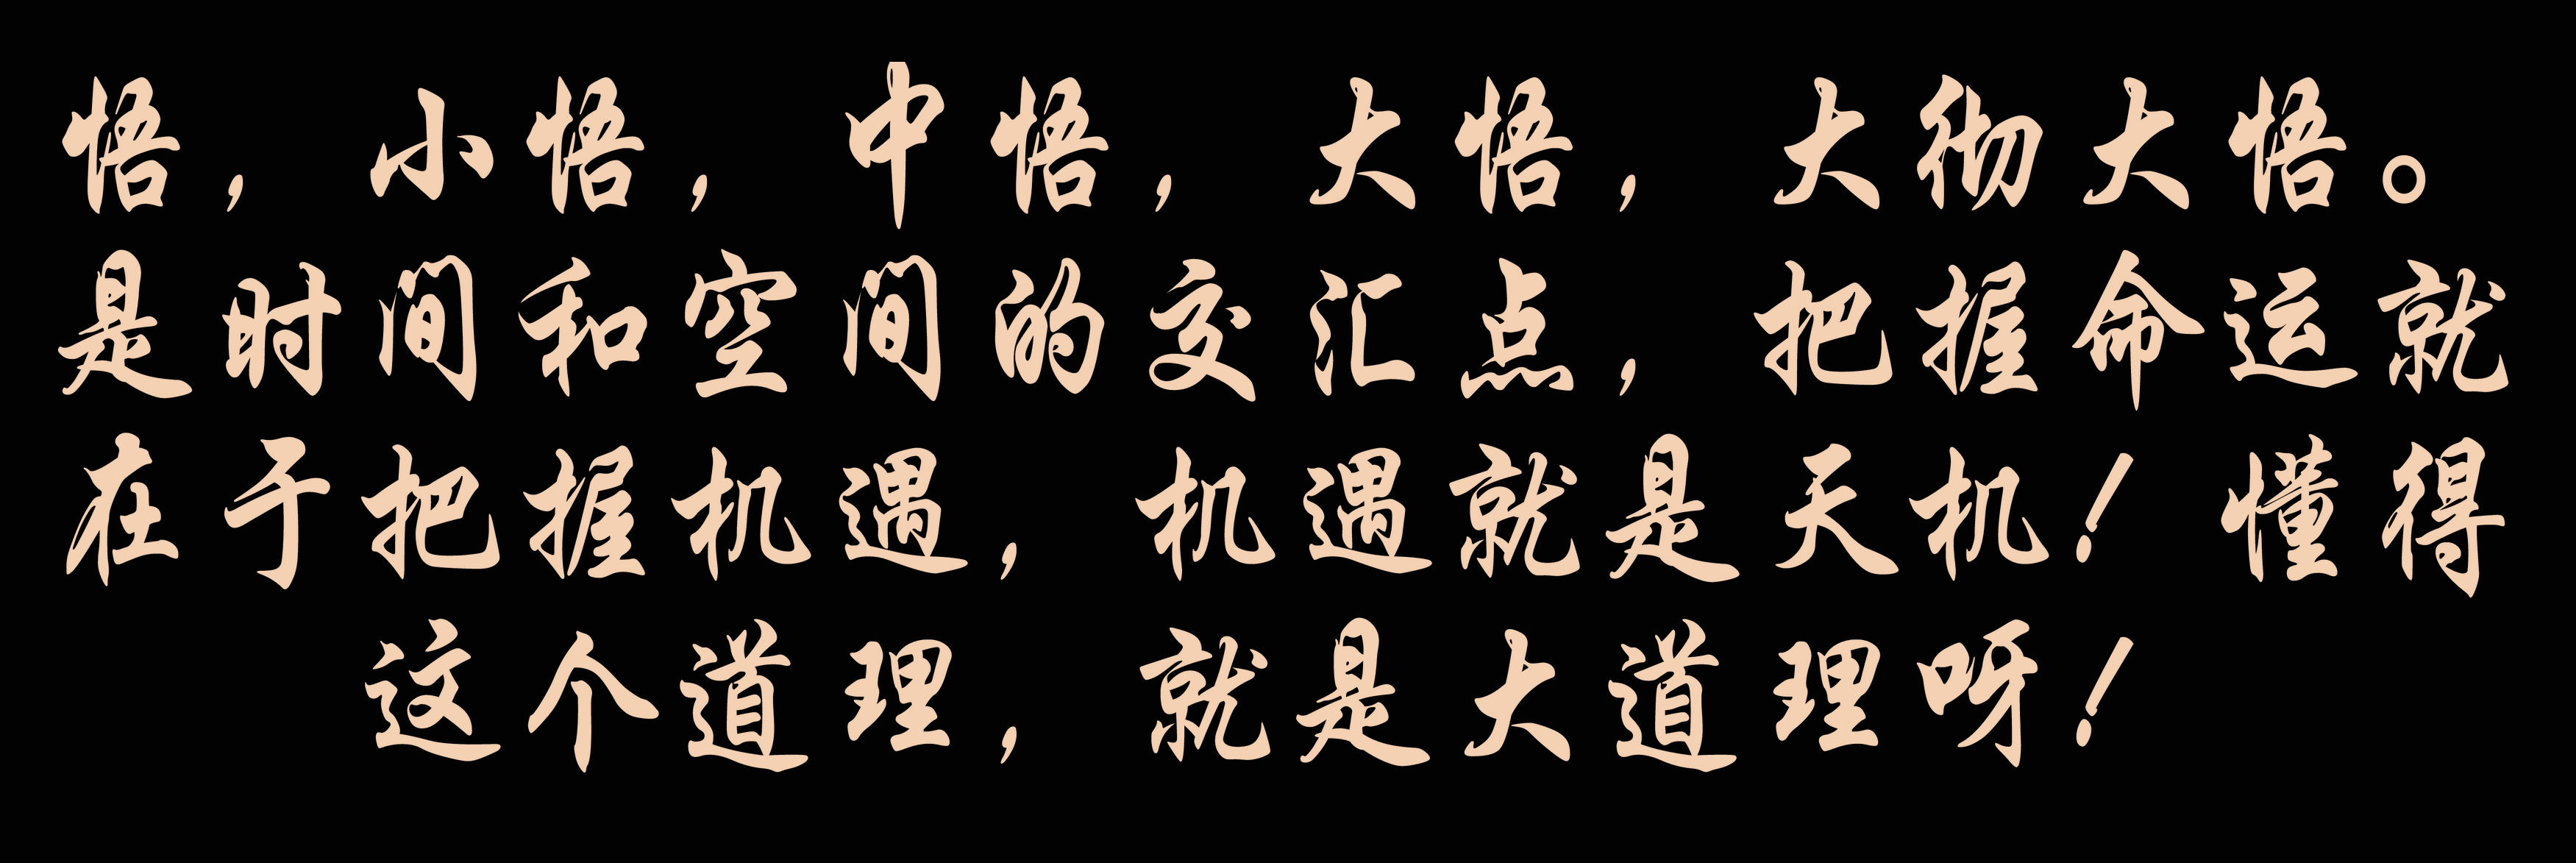 悟，小悟，中悟，大悟，大彻大悟。
是时间和空间的交汇点，把握命运就
在于把握机遇，机遇就是天机！懂得
这个道理，就是大道理呀！